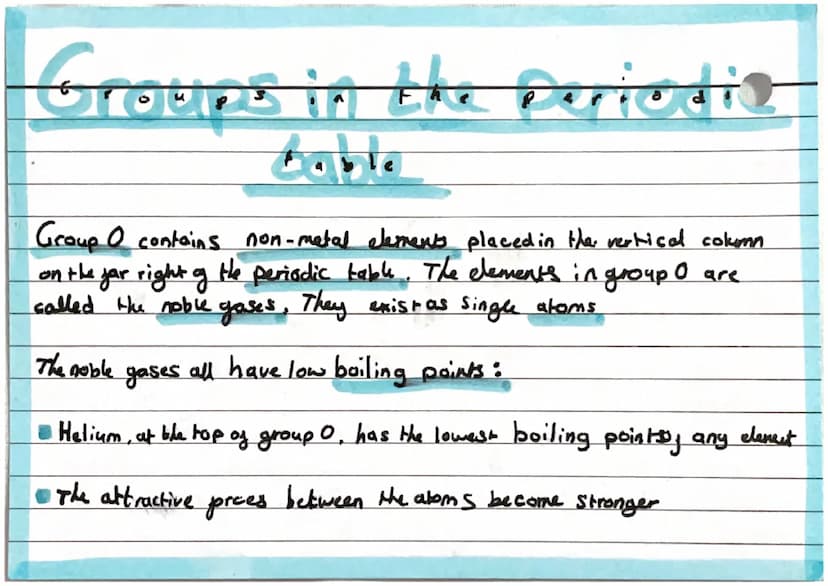 Groups in the periodic
table
Group 0 contains non-metal elements placed in the vertical column
on the far right of the periodic table. The elements in group 0 are
called the noble gases. They exist as single atoms
The noble gases all have low boiling points:
Helium, at the top of group 0, has the lowest boiling points of any element
The attractive forces between the atoms become stronger